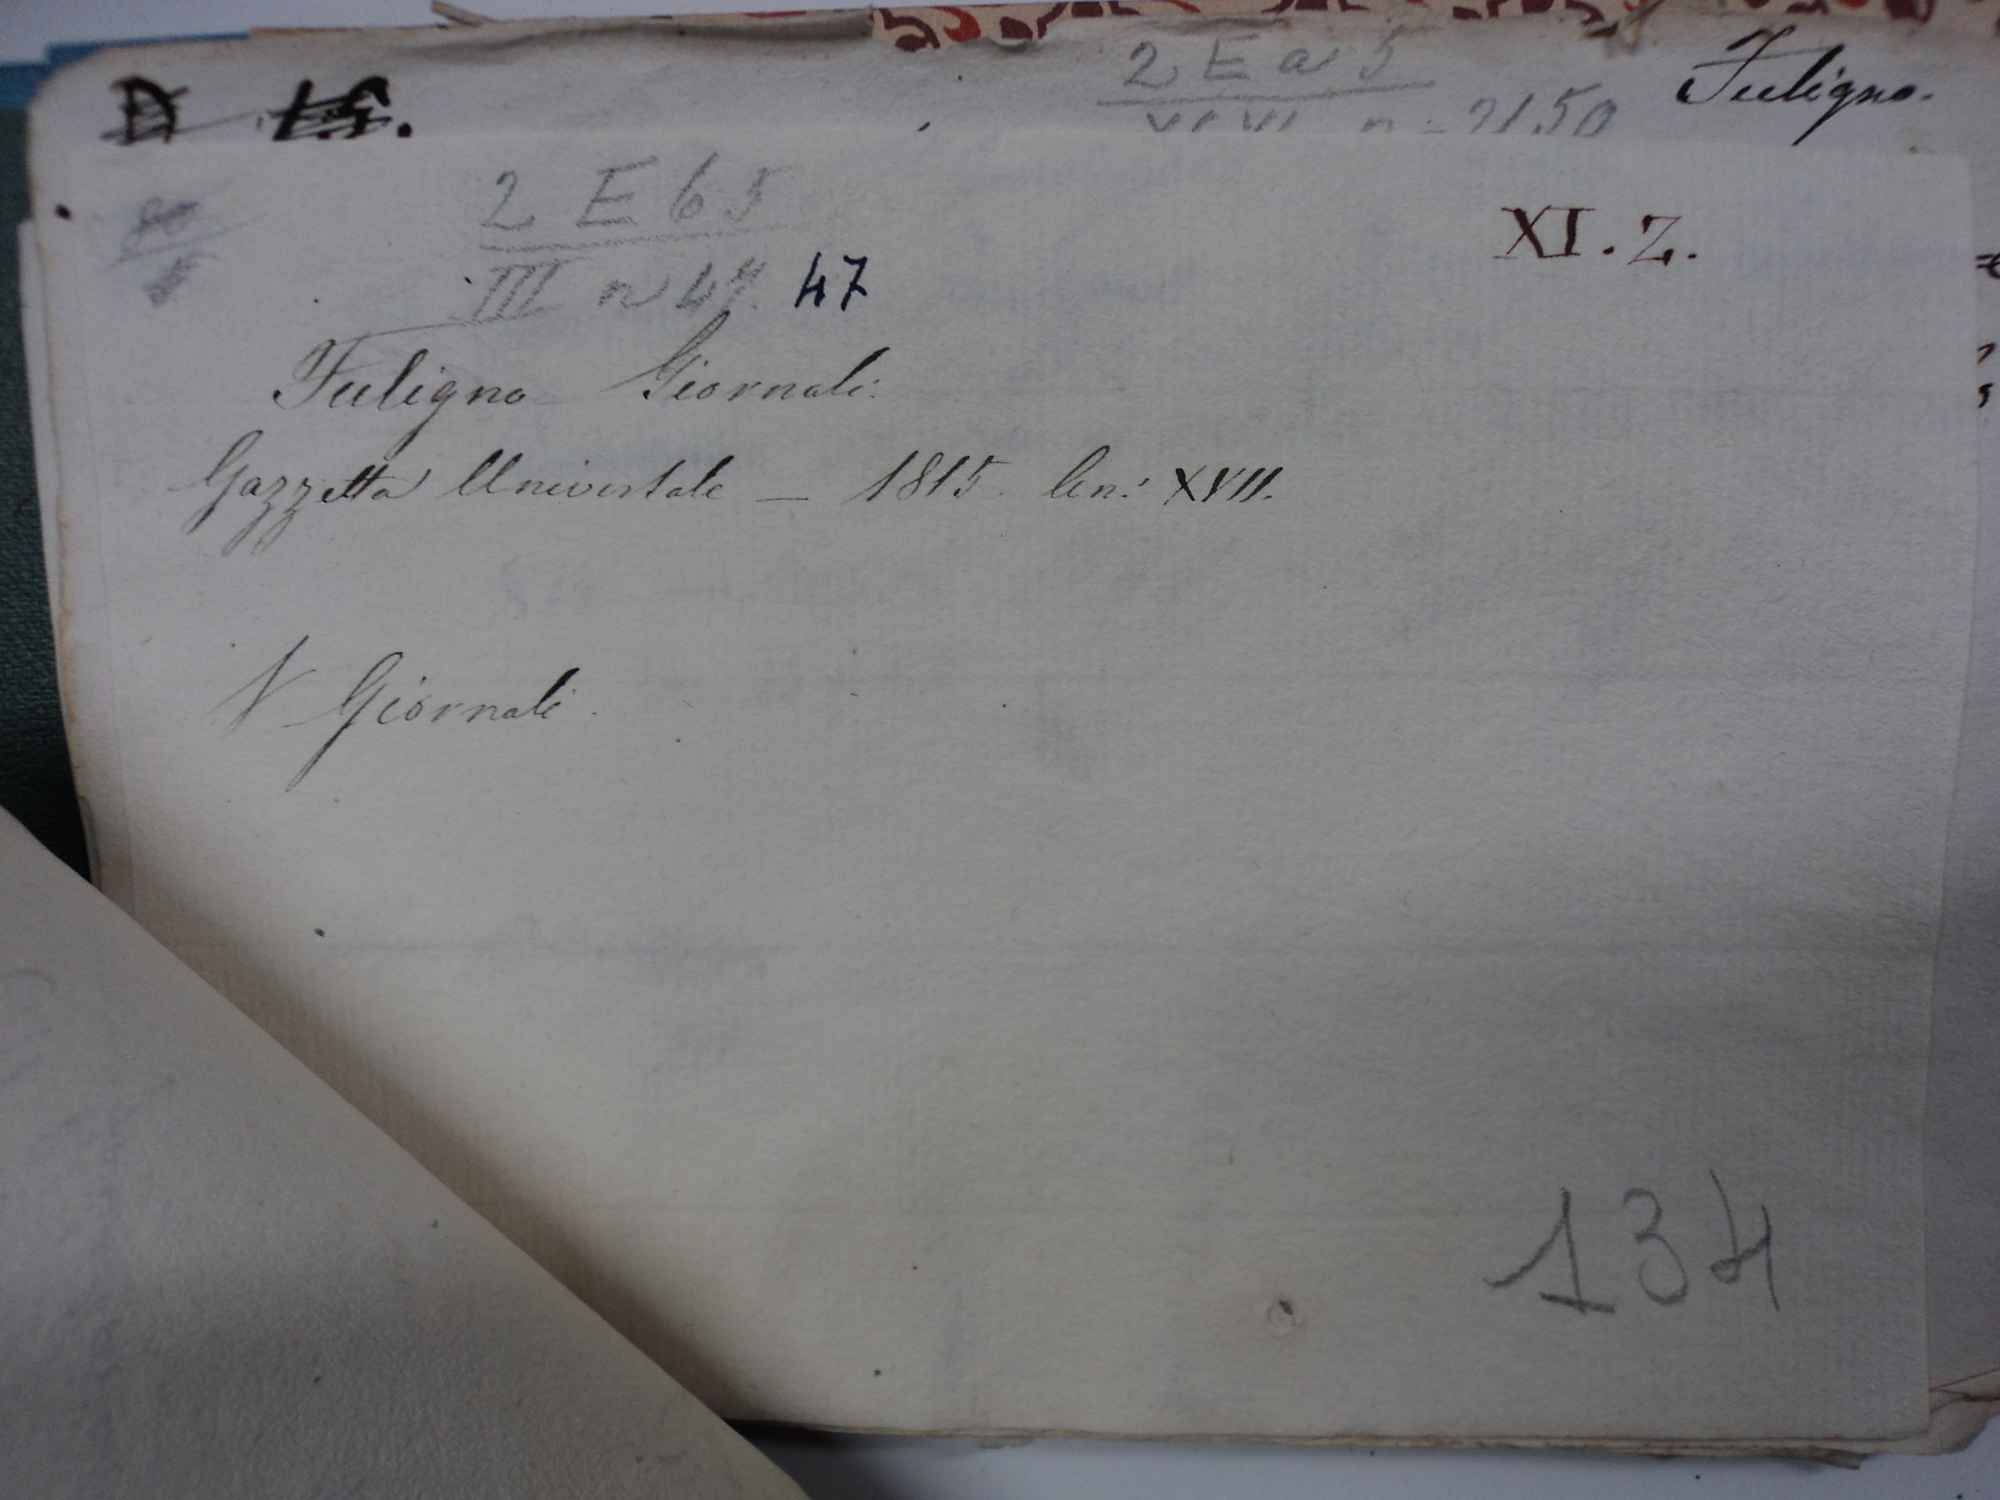 2 E a 5
Fuligno.
n. 2150
2 E 6 5
XI. Z.
III n 47. 47
Fuligno Giornali.
Gazzetta Universale — 1815. XVII.
V Giornali.
134